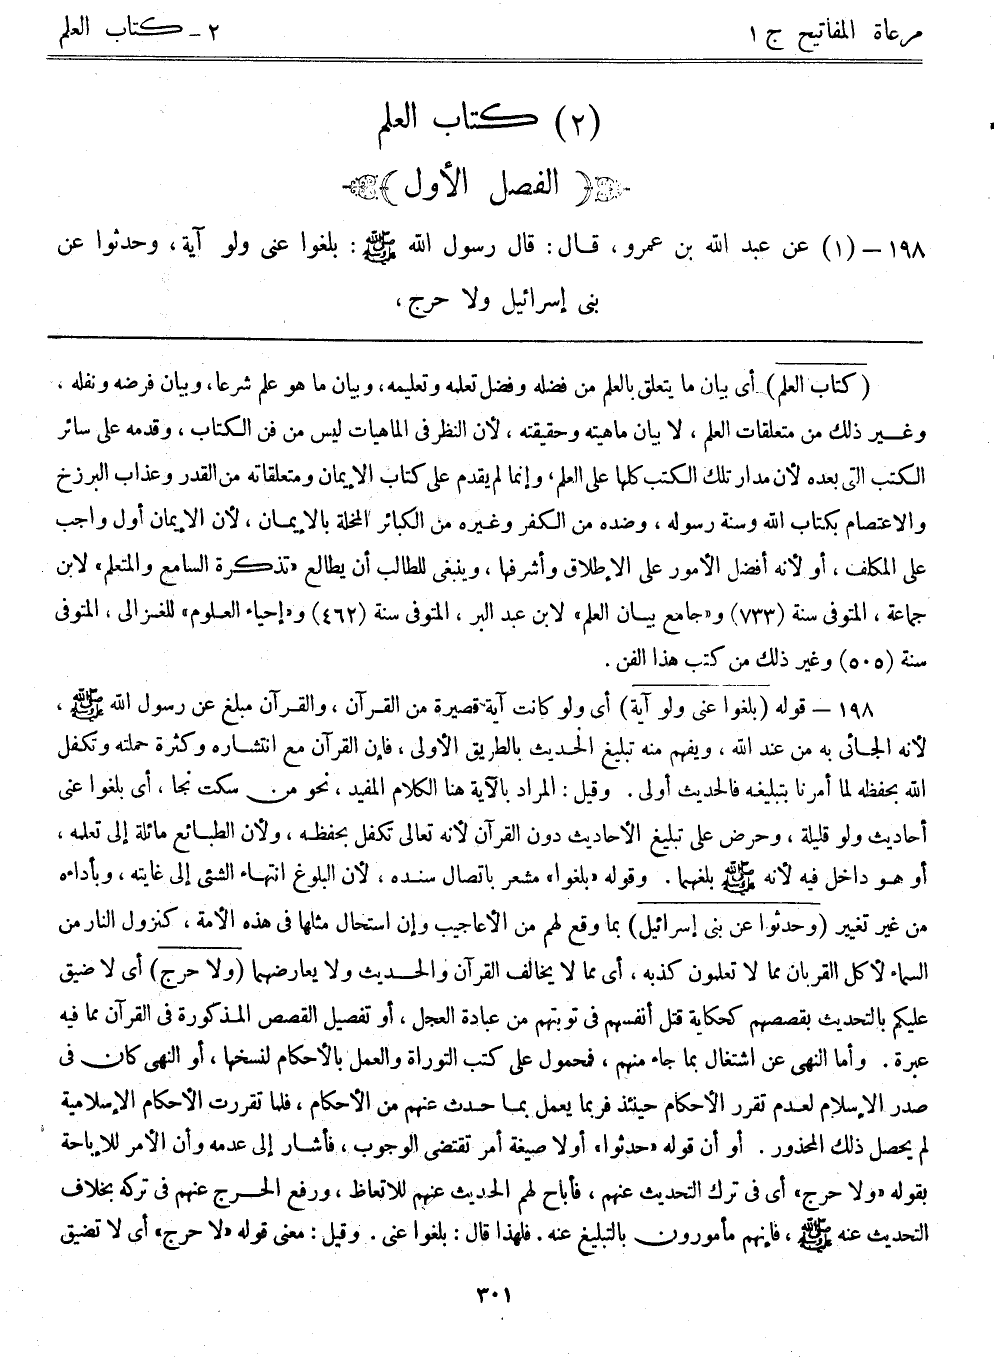 مرعاة المفاتيح ج ١
٢ - كتاب العلم
(٢) كتاب العلم
﴿ الفصل الأول ﴾
١٩٨ – (١) عن عبد الله بن عمرو، قال: قال رسول الله ﷺ: بلغوا عنى ولو آية، وحدثوا عن
بنى إسرائيل ولا حرج،
(كتاب العلم) أى بيان ما يتعلق بالعلم من فضله وفضل تعلمه وتعليمه، وبيان ما هو علم شرعا، وبيان فرضه ونفله،
وغير ذلك من متعلقات العلم، لا بيان ماهيته وحقيقته، لأن النظر فى الماهيات ليس من فن الكتاب، وقدمه على سائر
الكتب التى بعده لأن مدار تلك الكتب كلها على العلم، وإنما لم يقدم على كتاب الإيمان ومتعلقاته من القدر وعذاب البرزخ
والاعتصام بكتاب الله وسنة رسوله، وضده من الكفر وغيره من الكبائر المخلة بالإيمان، لأن الإيمان أول واجب
على المكلف، أو لأنه أفضل الأمور على الإطلاق وأشرفها، وينبغى للطالب أن يطالع «تذكرة السامع والمتعلم» لابن
جماعة، المتوفى سنة (٧٣٣) و«جامع بيان العلم» لابن عبد البر، المتوفى سنة (٤٦٢) و«إحياء العلوم» للغزالى، المتوفى
سنة (٥٠٥) وغير ذلك من كتب هذا الفن.
١٩٨ – قوله (بلغوا عنى ولو آية) أى ولو كانت آية قصيرة من القرآن، والقرآن مبلغ عن رسول الله ﷺ،
لأنه الجائى به من عند الله، ويفهم منه تبليغ الحديث بالطريق الأولى، فإن القرآن مع انتشاره وكثرة حملته وتكفل
الله بحفظه لما أمرنا بتبليغه فالحديث أولى. وقيل: المراد بالآية هنا الكلام المفيد، نحو من سكت نجا، أى بلغوا عنى
أحاديث ولو قليلة، وحرض على تبليغ الأحاديث دون القرآن لأنه تعالى تكفل بحفظه، ولأن الطبائع مائلة إلى تعلمه،
أو هو داخل فيه لأنه ﷺ بلغهما. وقوله «بلغوا» مشعر باتصال سنده، لأن البلوغ انتهاء الشئى إلى غايته، وبأداءه
من غير تغيير (وحدثوا عن بنى إسرائيل) بما وقع لهم من الأعاجيب وإن استحال مثلها فى هذه الأمة، كنزول النار من
السماء لأكل القربان مما لا تعلمون كذبه، أى مما لا يخالف القرآن والحديث ولا يعارضهما (ولا حرج) أى لا ضيق
عليكم بالتحديث بقصصهم كحكاية قتل أنفسهم فى توبتهم من عبادة العجل، أو تفصيل القصص المذكورة فى القرآن مما فيه
عبرة. وأما النهى عن اشتغال بما جاء منهم، فحمول على كتب التوراة والعمل بالأحكام لنسخها، أو النهى كان فى
صدر الإسلام لعدم تقرر الأحكام حينئذ فربما يعمل بما حدث عنهم من الأحكام، فلما تقررت الأحكام الإسلامية
لم يحصل ذلك المحذور. أو أن قوله «حدثوا» أولا صيغة أمر تقتضى الوجوب، فأشار إلى عدمه وأن الأمر للإباحة
بقوله «ولا حرج» أى فى ترك التحديث عنهم، فأباح لهم الحديث عنهم للاتعاظ، ورفع الحرج عنهم فى تركه بخلاف
التحديث عنه ﷺ، فإنهم مأمورون بالتبليغ عنه. فلهذا قال: بلغوا عنى. وقيل: معنى قوله «لا حرج» أى لا تضيق
٣٠١